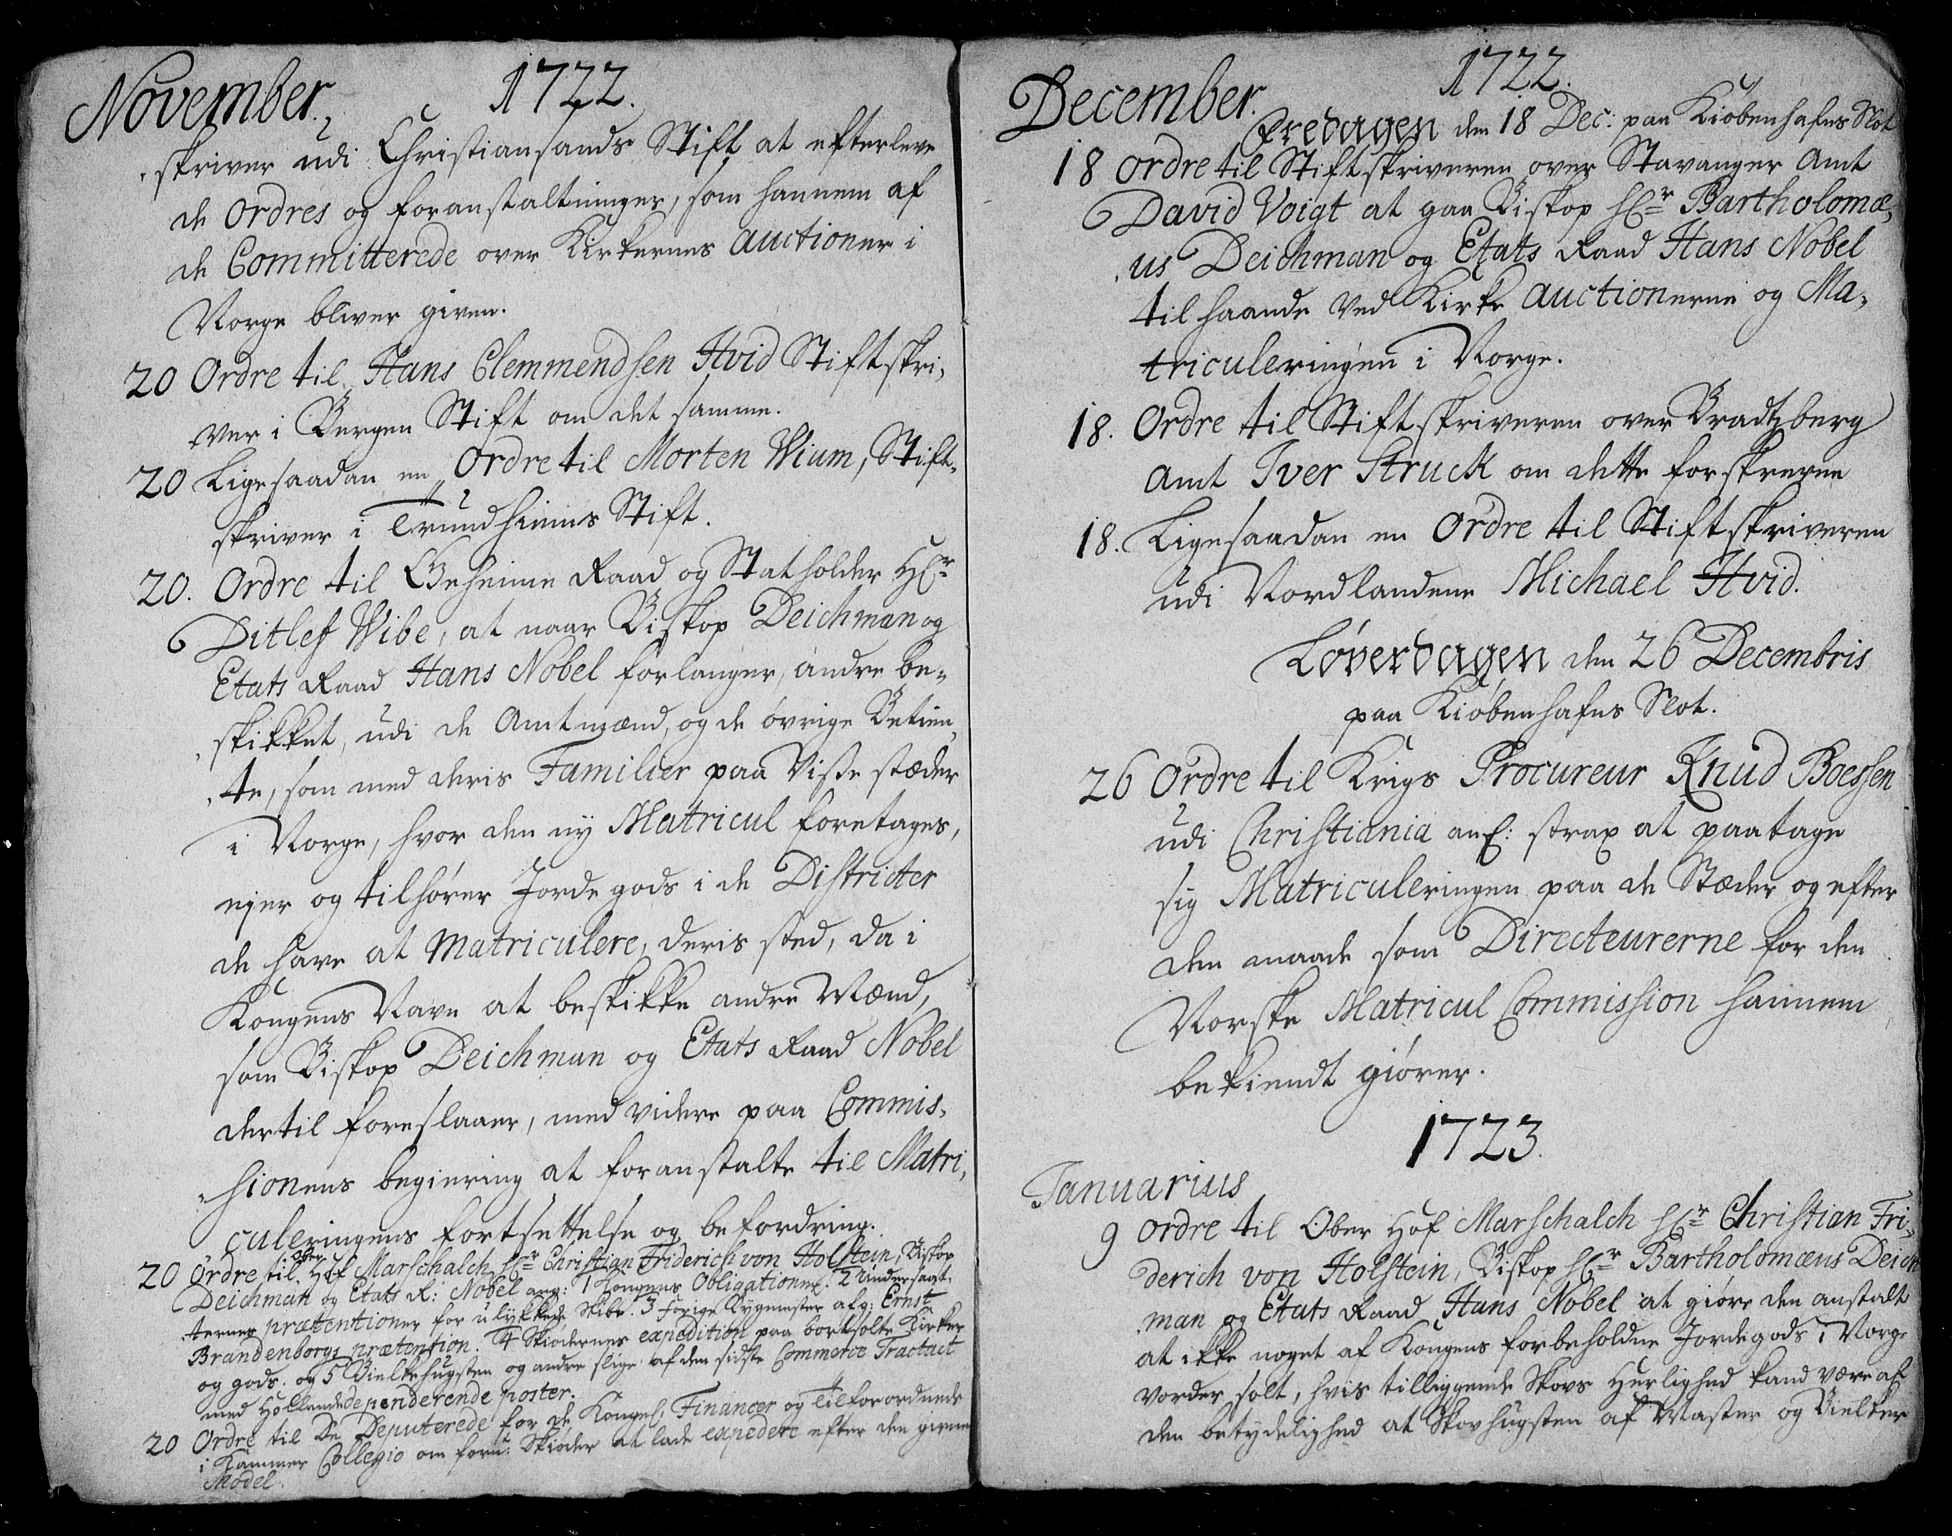 November. 1722.
skriver udi Christiansands Stift at efterleve
de Ordres og foranstaltninger, som hannem af
de Committerede over Kirkernes Auctioner i
Norge bliver given.
20 Ordre til Hans Clemmendsen Hvid Stiftskri-
ver i Bergen Stift om det samme.
20 Ligesaadan en Ordre til Morten Wium, Stift-
skriver i Trundhiems Stift.
20. Ordre til Geheime Raad og Statholder Hr
Ditlef Wibe, at naar Biskop Deichman og
Etats Raad Hans Nobel forlanger, andre be-
skikket, udi de Amtmænd, og de øvrige Betien-
te, som med deris Familier paa Visse stæder
i Norge, hvor den ny Matricul foretages,
ejer og tilhører Jordegods i de Districter
de have at Matriculere, deris sted, da i
Kongens Navn at beskikke andre Mænd,
som Biskop Deichman og Etats Raad Nobel
dertil foreslaaer, med videre paa Commis-
sionens begiering at foranstalte til Matri-
culeringens fortsettelse og befordring.
20 Ordre til Ober Hof Marschalch Hr Christian Friderich von Holstein, Biskop
Deichman og Etats R: Nobel ang: 1 Kongens Obligationer. 2 Undersaat-
ternes prætentioner for ulykkede Skibe. 3 forige Bygmester afg: Ernst
Brandenborgs prætention. 4 Skiødernes expedition paa bortsolte Kirker
og gods. og 5 Bielkehugsten og andre slige af den sidste Commerce Tractact
med Holland dependerende poster.
20 Ordre til De Deputerede for de Kongel: Financer og tilforordnede
i Kammer Collegio om forn: Skiøder at lade expedere efter den givne
Model.
December. 1722.
Fredagen den 18 Dec: paa Kiøbenhafns Slot
18 Ordre til Stiftskriveren over Stavanger Amt
David Voigt at gaa Biskop Hr Bartholomæ-
us Deichman og Etats Raad Hans Nobel
til haande ved Kirke Auctionerne og Ma-
triculeringen i Norge.
18. Ordre til Stiftskriveren over Bradtzberg
Amt Iver Struck om dette forskrevne
18. Ligesaadan en Ordre til Stiftskriveren
udi Nordlandene Michael Hvid.
Løverdagen den 26 Decembris
paa Kiøbenhafns Slot.
26 Ordre til Krigs Procureur Knud Boessen
udi Christiania anl: strax at paatage
sig Matriculeringen paa de Stæder og efter
den maade som Directeurerne for den
Norske Matricul Commission hannem
bekiendt giører.
1723.
Januarius
9 Ordre til Ober Hof Marschalch Hr Christian Fri-
derich von Holstein, Biskop Hr Bartholomæus Deich
man og Etats Raad Hans Nobel at giøre den anstalt
at ikke noget af Kongens forbeholdne Jordegods i Norge
vorder solt, hvis tilliggende Skovs Herlighed kand være af
den betydelighed at Skovhugsten af Master og Bielker